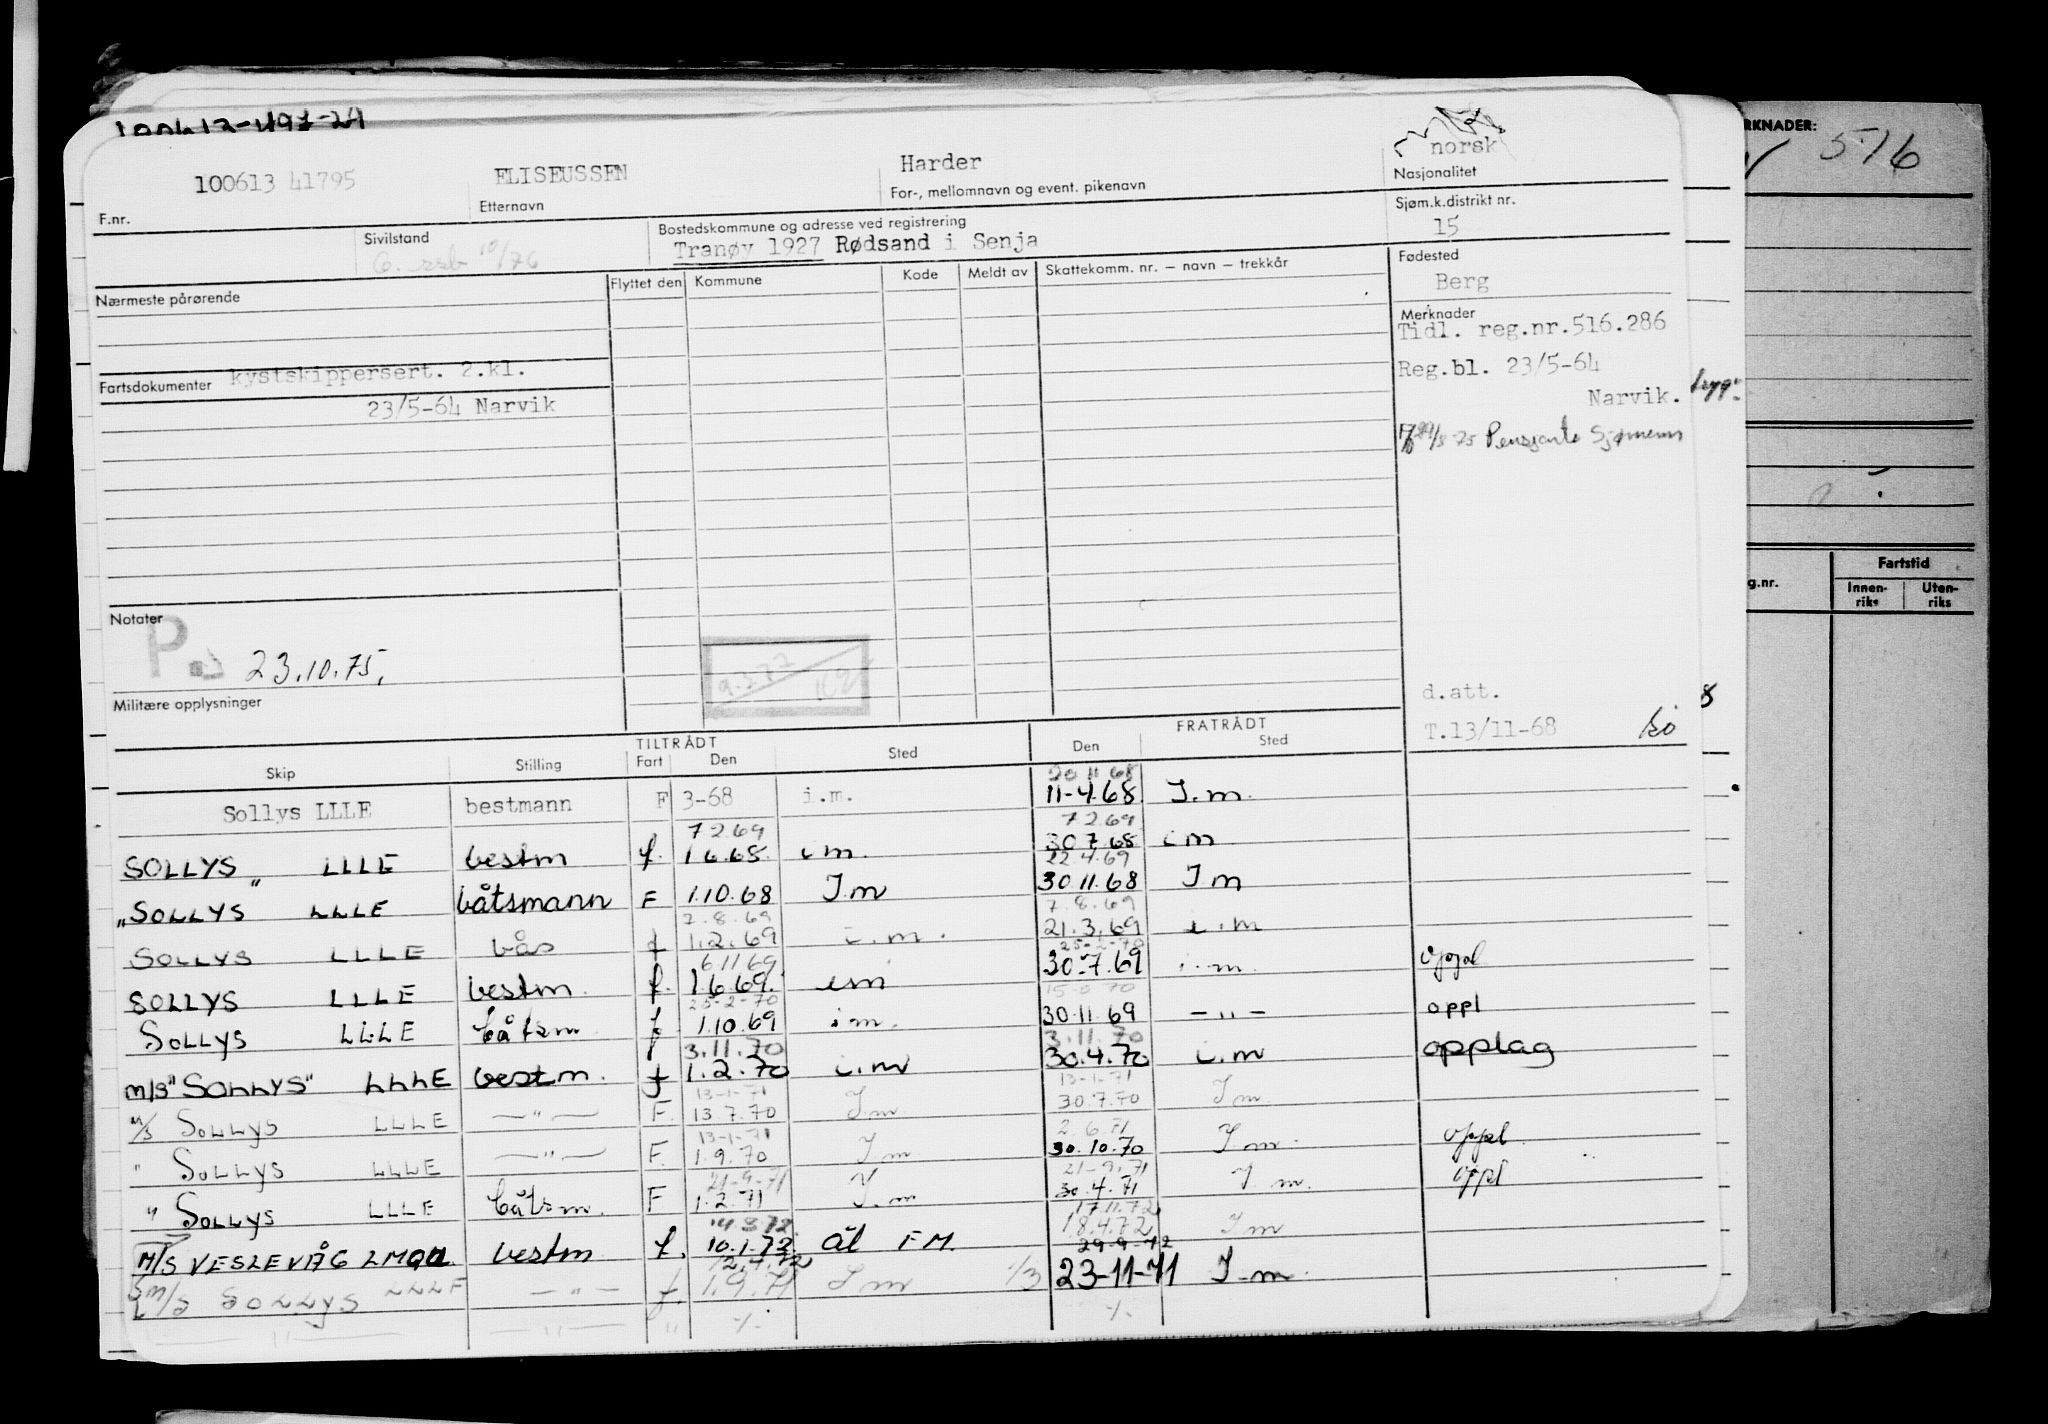 norsk
100613 41795 ELISEUSSEN Harder
F.nr. Etternavn For-, mellomnavn og event. pikenavn Nasjonalitet
Sivilstand Bostedskommune og adresse ved registrering Sjøm.k.distrikt nr.
Tranøy 1927 Rødsand i Senja 15
Nærmeste pårørende Flyttet den Kommune Kode Meldt av Skattekomm. nr. – navn – trekkår Fødested
Berg
Merknader
Tidl. reg.nr.516.286
Fartsdokumenter kystskippersert. 2.kl. Reg.bl. 23/5-64
23/5-64 Narvik Narvik.
Notater
P. 23.10.75.
Militære opplysninger
d.att.
T.13/11-68
TILTRÅDT FRATRÅDT
Skip Stilling Fart Den Sted Den Sted
20 11 68
Sollys LLLE bestmann F 3-68 i.m. 11-4.68 I.m.
7 2 69 7 2 69
SOLLYS LLLE bestm f. 1 6.68. i m. 30 7.68 i m
22.4.69
"SOLLYS" LLLE båtsmann F 1.10.68 I.m 30.11.68 I m
7.8.69 7.8.69
SOLLYS LLLE bås f 1.2.69 i.m. 21.3.69 i.m
6 11 69 25-2-70
SOLLYS LLLE bestm. f. 1.6.69. i m 30.7.69 i.m. oppl
25-2-70
SOLLYS LLLE båtsm f 1.10.69 i m. 30.11.69 -"- oppl
3.11.70 3.11.70
M/S "SOLLYS" LLLE bestm. f 1.2.70 i.m 30.4.70 i.m opplag
13-1-71 13-1-71
M/S SOLLYS LLLE -"- F. 13.7.70 I m 30.7.70 I m.
13-1-71 2.6.71
" SOLLYS LLLE -"- F. 1.9.70 I m 30.10.70 I m. oppl.
21-9-71 21-9-71
" SOLLYS LLLE båtsm. F 1.2.71 I.m 30.4.71 I m. oppl
17.11.72
18.4.72 I m
M/S VESLEVÅG bestm f. 10.1.72 Ål F M. 29-9-72
M/S SOLLYS LLLE -"- f. 1.9.71 I m 1/3 23-11-71 I.m.
-"- -"- "
MERKNADER:
516
Fartstid
Innen-
riks
Uten-
riks